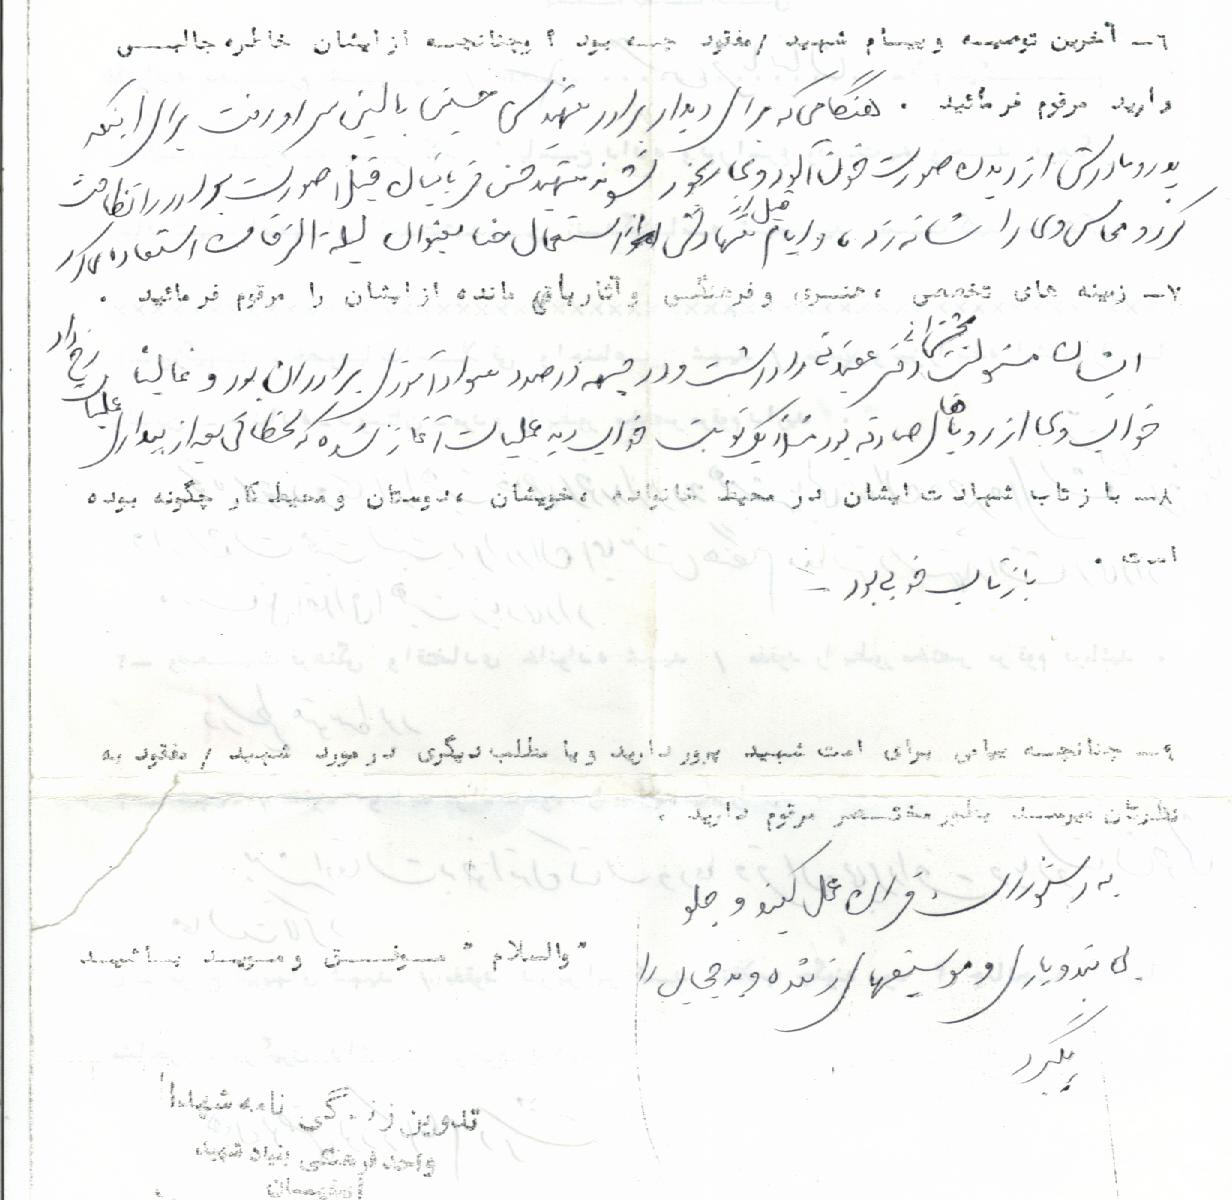 ٦ـ آخرین توصیه و پیام شهید /مفقود چه بود ؟ وچنانچه از ایشان خاطره جالبی
دارید مرقوم فرمائید . هنگامی که برای دیدار برادر مهندس حسینی بالین سر او رفت برای اینکه
پدر و مادرش از دیدن صورت خون آلود وی رنجور نشوند مهندس قبلا صورت برادر را نظافت
کرد و محاسن وی را شانه زد ، و ایام قبل از استعمال حنا بعنوان لیلة الزفاف استفاده می کرد
٧ـ زمینه های تخصصی ،هنری و فرهنگی و آثار باقی مانده از ایشان را مرقوم فرمائید .
ایشان مسئولیت دفتر عقیدتی را داشت و در جبهه در صدد سواد آموزی برادران بود و غالباً
خواب وی از رویاهای صادقه بود مثلا یک نوبت خواب دید عملیات آغاز شده که لحظاتی بعد از بیداری عملیات رخ داد
٨ـ بازتاب شهادت ایشان در محیط خانواده ،خویشان ،دوستان و محیط کار چگونه بوده
است .
بازتاب خوبی بود ـ
٩ـ چنانچه پیامی برای امت شهید پرور دارید و یا مطلب دیگری در مورد شهید / مفقود به
نظرتان میرسد بطور مختصر مرقوم دارید .
به دستورات قرآن عمل کنید و جلو
بی بندوباری و موسیقیهای زننده و بد حجابی را
بگیرد
"والسلام" موفق و موید باشید
تدوین زندگی نامه شهدا
واحد فرهنگی بنیاد شهید